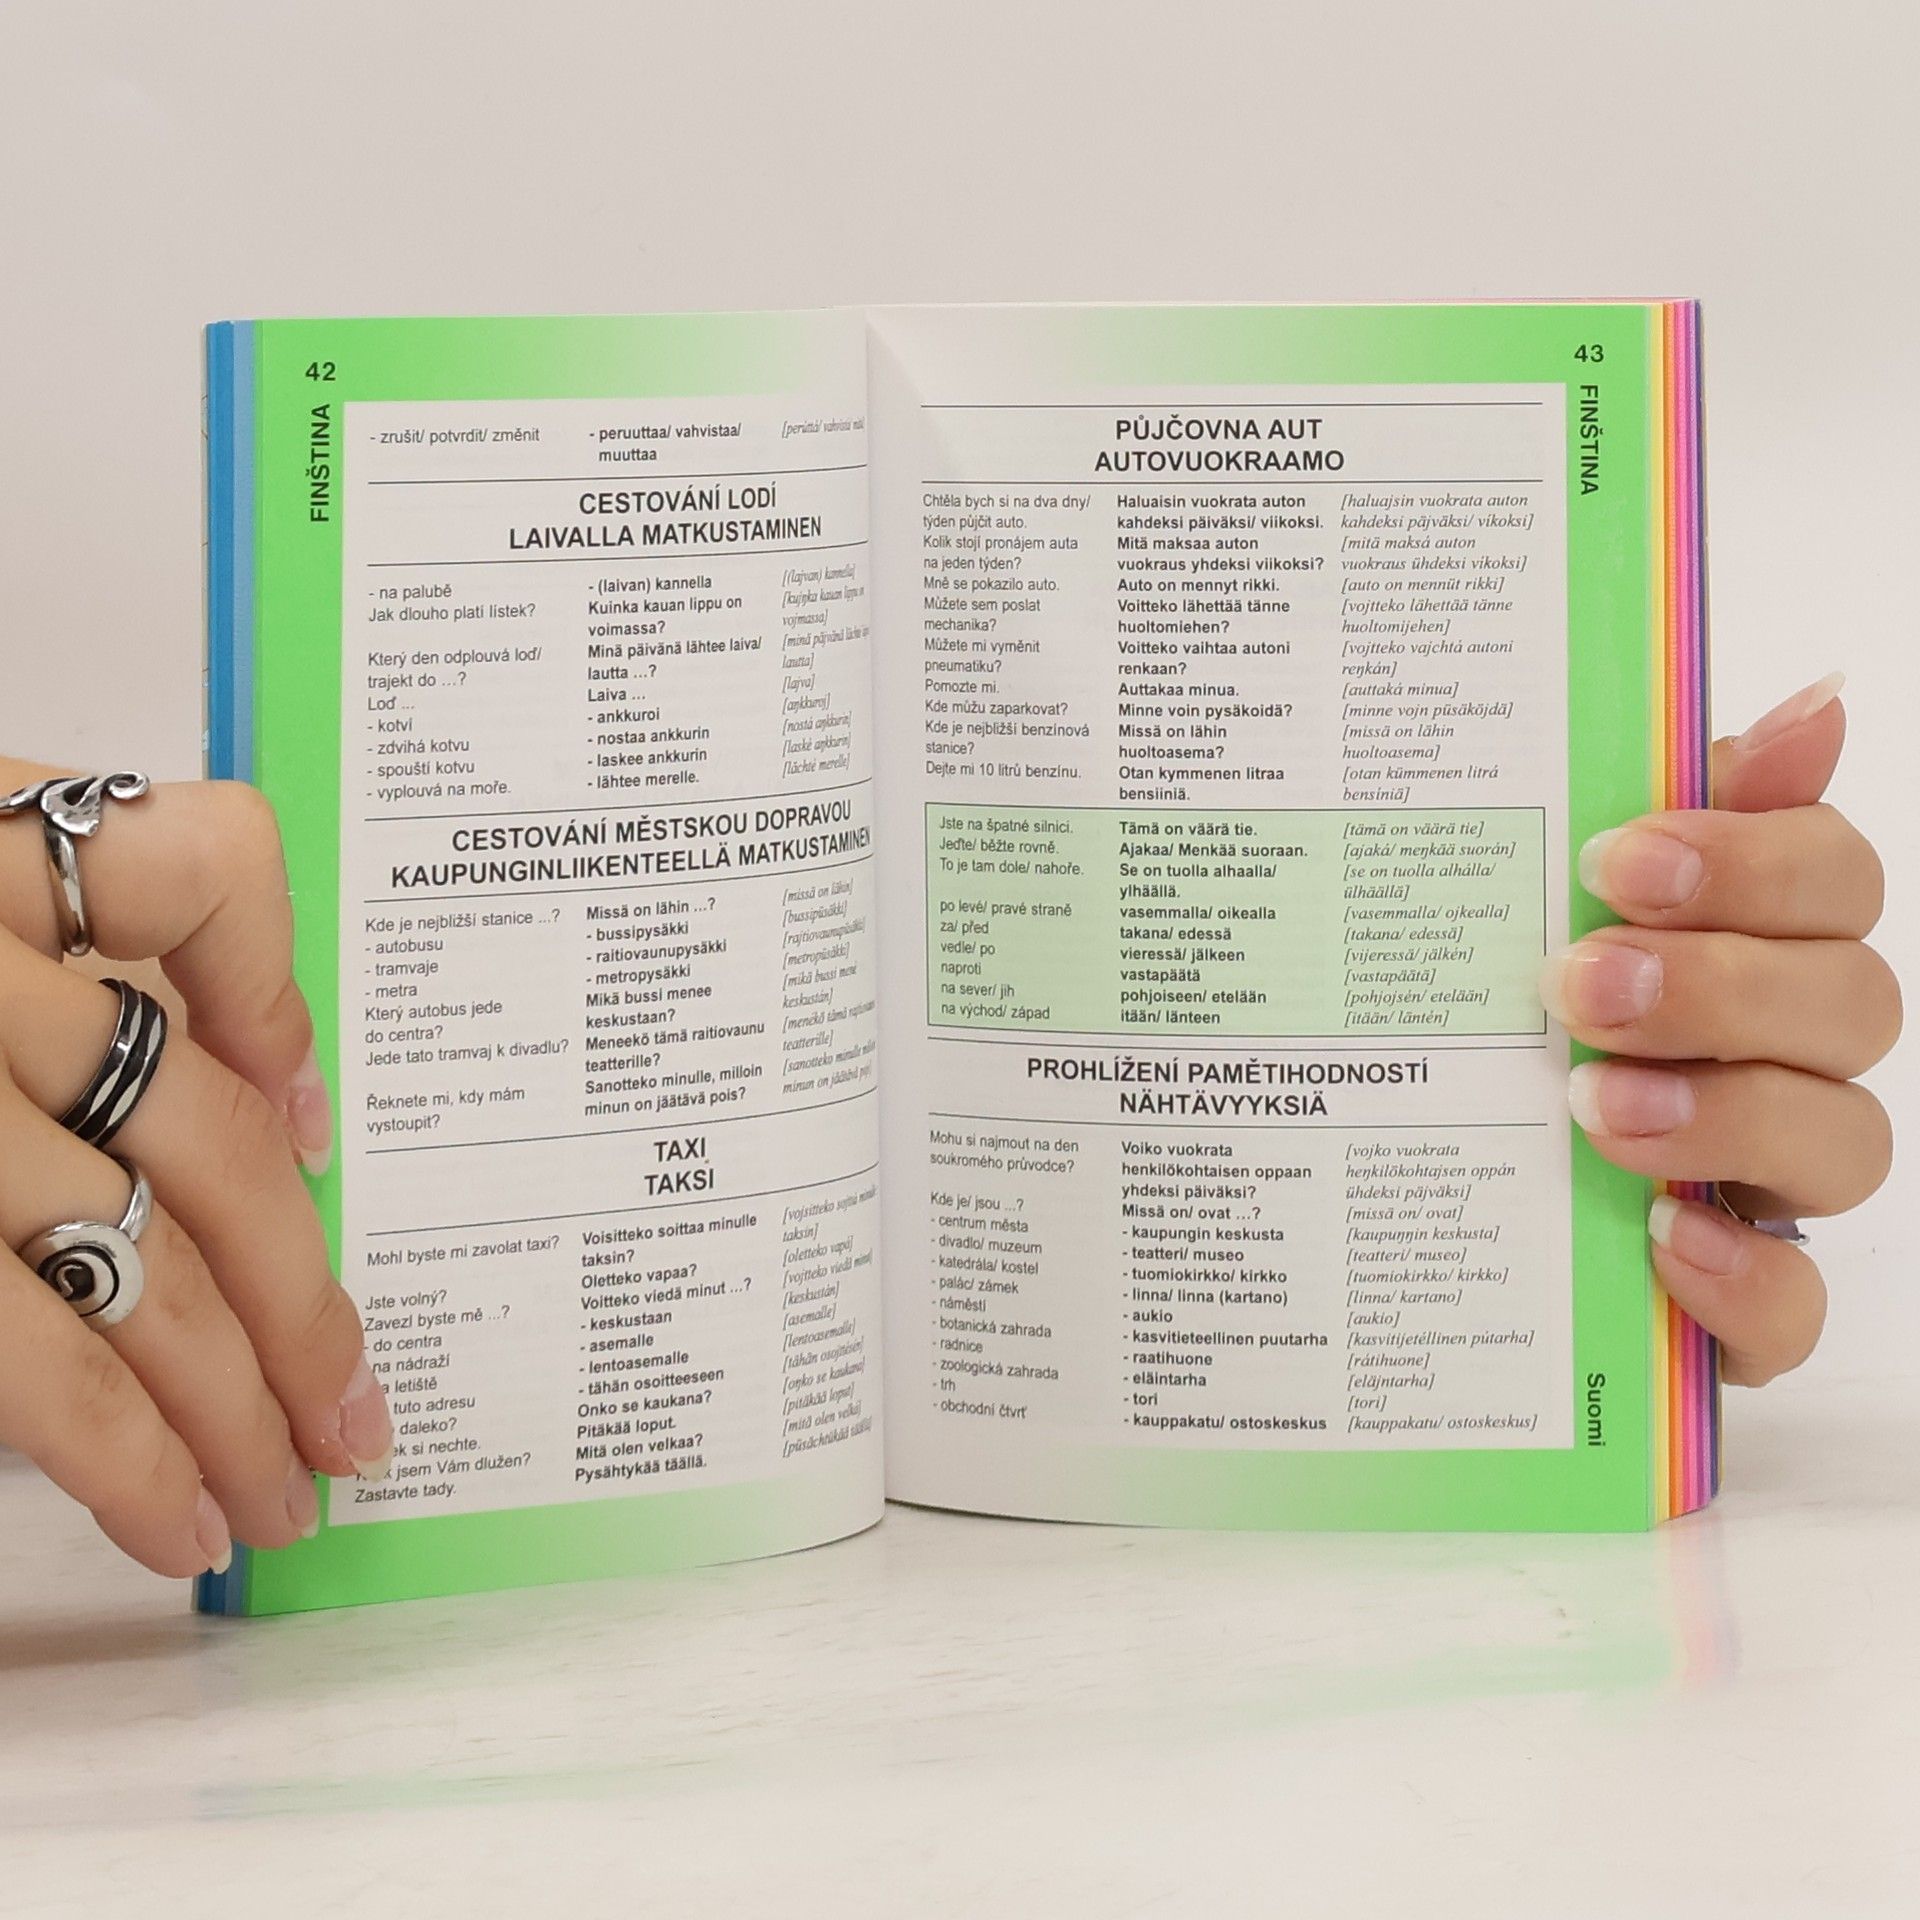 42
FINŠTINA
- zrušit/ potvrdit/ změnit - peruuttaa/ vahvistaa/ [perúttá/ vahvistá
muuttaa
CESTOVÁNÍ LODÍ
LAIVALLA MATKUSTAMINEN
- na palubě - (laivan) kannella [(lajvan) kannella]
Jak dlouho platí lístek? Kuinka kauan lippu on [kujŋka kauan lippu on
voimassa? vojmassa]
Který den odplouvá loď/ Minä päivänä lähtee laiva/ [minä päjvänä
trajekt do ...? lautta ...? lautta]
Loď ... Laiva ... [lajva]
- kotví - ankkuroi [aŋkkuroj]
- zdvihá kotvu - nostaa ankkurin [nostá aŋkkurin]
- spouští kotvu - laskee ankkurin [laské aŋkkurin]
- vyplouvá na moře. - lähtee merelle. [lächté merelle]
CESTOVÁNÍ MĚSTSKOU DOPRAVOU
KAUPUNGINLIIKENTEELLÄ MATKUSTAMINEN
Kde je nejbližší stanice ...? Missä on lähin ...? [missä on lähin]
- autobusu - bussipysäkki [bussipüsäkki]
- tramvaje - raitiovaunupysäkki [rajtiovaunupüsäkki]
- metra - metropysäkki [metropüsäkki]
Který autobus jede Mikä bussi menee [mikä bussi mené
do centra? keskustaan? keskustán]
Jede tato tramvaj k divadlu? Meneekö tämä raitiovaunu [menékö tämä
teatterille? teatterille]
Řekněte mi, kdy mám Sanotteko minulle, milloin [sanotteko minulle
vystoupit? minun on jäätävä pois? minun on jäätävä
TAXI
TAKSI
Mohl byste mi zavolat taxi? Voisitteko soittaa minulle [vojsitteko sojttá
taksin? taksin]
Jste volný? Oletteko vapaa? [oletteko vapá]
Zavezl byste mě ...? Voitteko viedä minut ...? [vojtteko viedä
- do centra - keskustaan [keskustán]
na nádraží - asemalle [asemalle]
letiště - lentoasemalle [lentoasemalle]
tuto adresu - tähän osoitteeseen [tähän osojttésén]
daleko? Onko se kaukana? [oŋko se kaukana]
si nechte. Pitäkää loput. [pitäkää loput]
jsem Vám dlužen? Mitä olen velkaa? [mitä olen velká]
Zastavte tady. Pysähtykää täällä. [püsächtükää
43
FINŠTINA
PŮJČOVNA AUT
AUTOVUOKRAAMO
Chtěla bych si na dva dny/ Haluaisin vuokrata auton [haluajsin vuokrata auton
týden půjčit auto. kahdeksi päiväksi/ viikoksi. kahdeksi päjväksi/ víkoksi]
Kolik stojí pronájem auta Mitä maksaa auton [mitä maksá auton
na jeden týden? vuokraus yhdeksi viikoksi? vuokraus ühdeksi víkoksi]
Mně se pokazilo auto. Auto on mennyt rikki. [auto on mennüt rikki]
Můžete sem poslat Voitteko lähettää tänne [vojtteko lähettää tänne
mechanika? huoltomiehen? huoltomijehen]
Můžete mi vyměnit Voitteko vaihtaa autoni [vojtteko vajchtá autoni
pneumatiku? renkaan? reŋkán]
Pomozte mi. Auttakaa minua. [auttaká minua]
Kde můžu zaparkovat? Minne voin pysäköidä? [minne vojn püsäköjdä]
Kde je nejbližší benzínová Missä on lähin [missä on lähin
stanice? huoltoasema? huoltoasema]
Dejte mi 10 litrů benzínu. Otan kymmenen litraa [otan kümmenen litrá
bensiiniä. bensíniä]
Jste na špatné silnici. Tämä on väärä tie. [tämä on väärä tie]
Jeďte/ běžte rovně. Ajakaa/ Menkää suoraan. [ajaká/ meŋkää suorán]
To je tam dole/ nahoře. Se on tuolla alhaalla/ [se on tuolla alhálla/
ylhäällä. ülhäällä]
po levé/ pravé straně vasemmalla/ oikealla [vasemmalla/ ojkealla]
za/ před takana/ edessä [takana/ edessä]
vedle/ po vieressä/ jälkeen [vijeressä/ jälkén]
naproti vastapäätä [vastapäätä]
na sever/ jih pohjoiseen/ etelään [pohjojsén/ etelään]
na východ/ západ itään/ länteen [itään/ läntén]
PROHLÍŽENÍ PAMĚTIHODNOSTÍ
NÄHTÄVYYKSIÄ
Mohu si najmout na den Voiko vuokrata [vojko vuokrata
soukromého průvodce? henkilökohtaisen oppaan heŋkilökohtajsen oppán
yhdeksi päiväksi? ühdeksi päjväksi]
Kde je/ jsou ...? Missä on/ ovat ...? [missä on/ ovat]
- centrum města - kaupungin keskusta [kaupuŋŋin keskusta]
- divadlo/ muzeum - teatteri/ museo [teatteri/ museo]
- katedrála/ kostel - tuomiokirkko/ kirkko [tuomiokirkko/ kirkko]
- palác/ zámek - linna/ linna (kartano) [linna/ kartano]
- náměstí - aukio [aukio]
- botanická zahrada - kasvitieteellinen puutarha [kasvitijetéllinen pútarha]
- radnice - raatihuone [rátihuone]
- zoologická zahrada - eläintarha [eläjntarha]
- trh - tori [tori]
- obchodní čtvrť - kauppakatu/ ostoskeskus [kauppakatu/ ostoskeskus]
Suomi